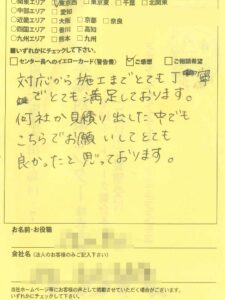 □関東エリア □東京西 □東京東 □千葉 □北関東
□中部エリア □愛知
□近畿エリア □大阪 □京都 □奈良
□四国エリア □香川 □高知
□九州エリア □熊本 □九州
■いずれかにチェックして下さい。
□センター長へのイエローカード(警告書) ☑ご感想 □ご相談希望
対応から施工までとても丁寧
でとても満足しております。
何社か見積り出した中でも
こちらでお願いしてとても
良かったと思っております。
お名前・お役職
会社名 (法人のお客様のみご記入下さい)
当社ホームページ等にお客様の声として掲載させていただく場合がございます。
いずれかにチェックして下さい。